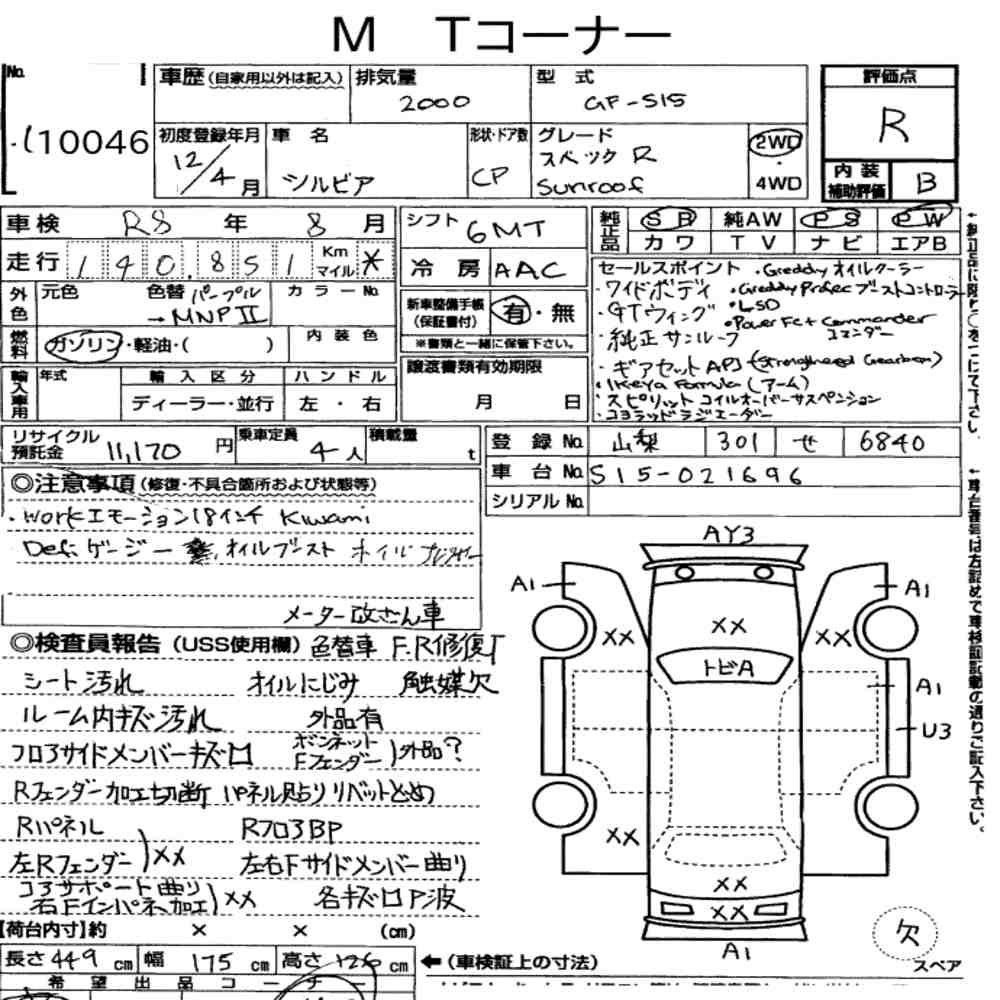 M Tコーナー
No. 車歴(自家用以外は記入) 排気量 2000 型式 GF-S15 評価点 R
10046
初度登録年月 12/4月 車名 シルビア 形状・ドア数 CP グレード スペックR Sunroof 2WD・4WD
内装補助評価 B
車検 R8年 8月 シフト 6MT 純正品 SR 純AW PS PW
カワ TV ナビ エアB
走行 140,851 Km マイル * 冷房 AAC
外色 元色 色替 パープル カラーNo.
→MNPⅡ
燃料 ガソリン・軽油・( ) 内装色
新車整備手帳(保証書付) 有・無
※書類と一緒に保管下さい。
輸入車用 年式 輸入区分 ハンドル
ディーラー・並行 左・右
譲渡書類有効期限
月 日
セールスポイント ・Greddy オイルクーラー
・ワイドボディ ・Greddy Profec ブーストコントローラー
・GTウィング ・LSD
・純正サンルーフ ・Power Fc + Commander コマンダー
・ギアセット
・Ikeya Formula (アーム)
・スピリット コイルオーバーサスペンション
・コヨラッド ラジエーター
リサイクル預託金 11,170円 乗車定員 4人 積載量 t
登録No. 山梨 301 せ 6840
車台No. S15-021696
シリアルNo.
◎注意事項(修復・不具合箇所および状態等)
・Workエモーション18インチ Kiwami
Defi ゲージー オイルブースト オイル プレッシャー
メーター改ざん車
◎検査員報告(USS使用欄) 色替車 F.R修復
シート汚れ オイルにじみ 触媒欠
ルーム内キズ汚れ 外品有
フロアサイドメンバーキズ凹 ボンネット Fフェンダー )外品?
Rフェンダー加工切断 パネル貼りリベットとめ
Rパネル RフロアBP
左Rフェンダー )XX 左右Fサイドメンバー曲り
コアサポート曲り 右Fインパネ加工 )XX 各キズ凹P波
【荷台内寸】約 × × (cm)
長さ 449 cm 幅 175 cm 高さ 126 cm
←(車検証上の寸法)
希望出品コーナー
AY3
A1 A1
XX XX XX
トビA
A1
U3
XX
XX
XX
A1
欠
スペア
←車台番号は左詰めで車検証記載の通りご記入下さい。